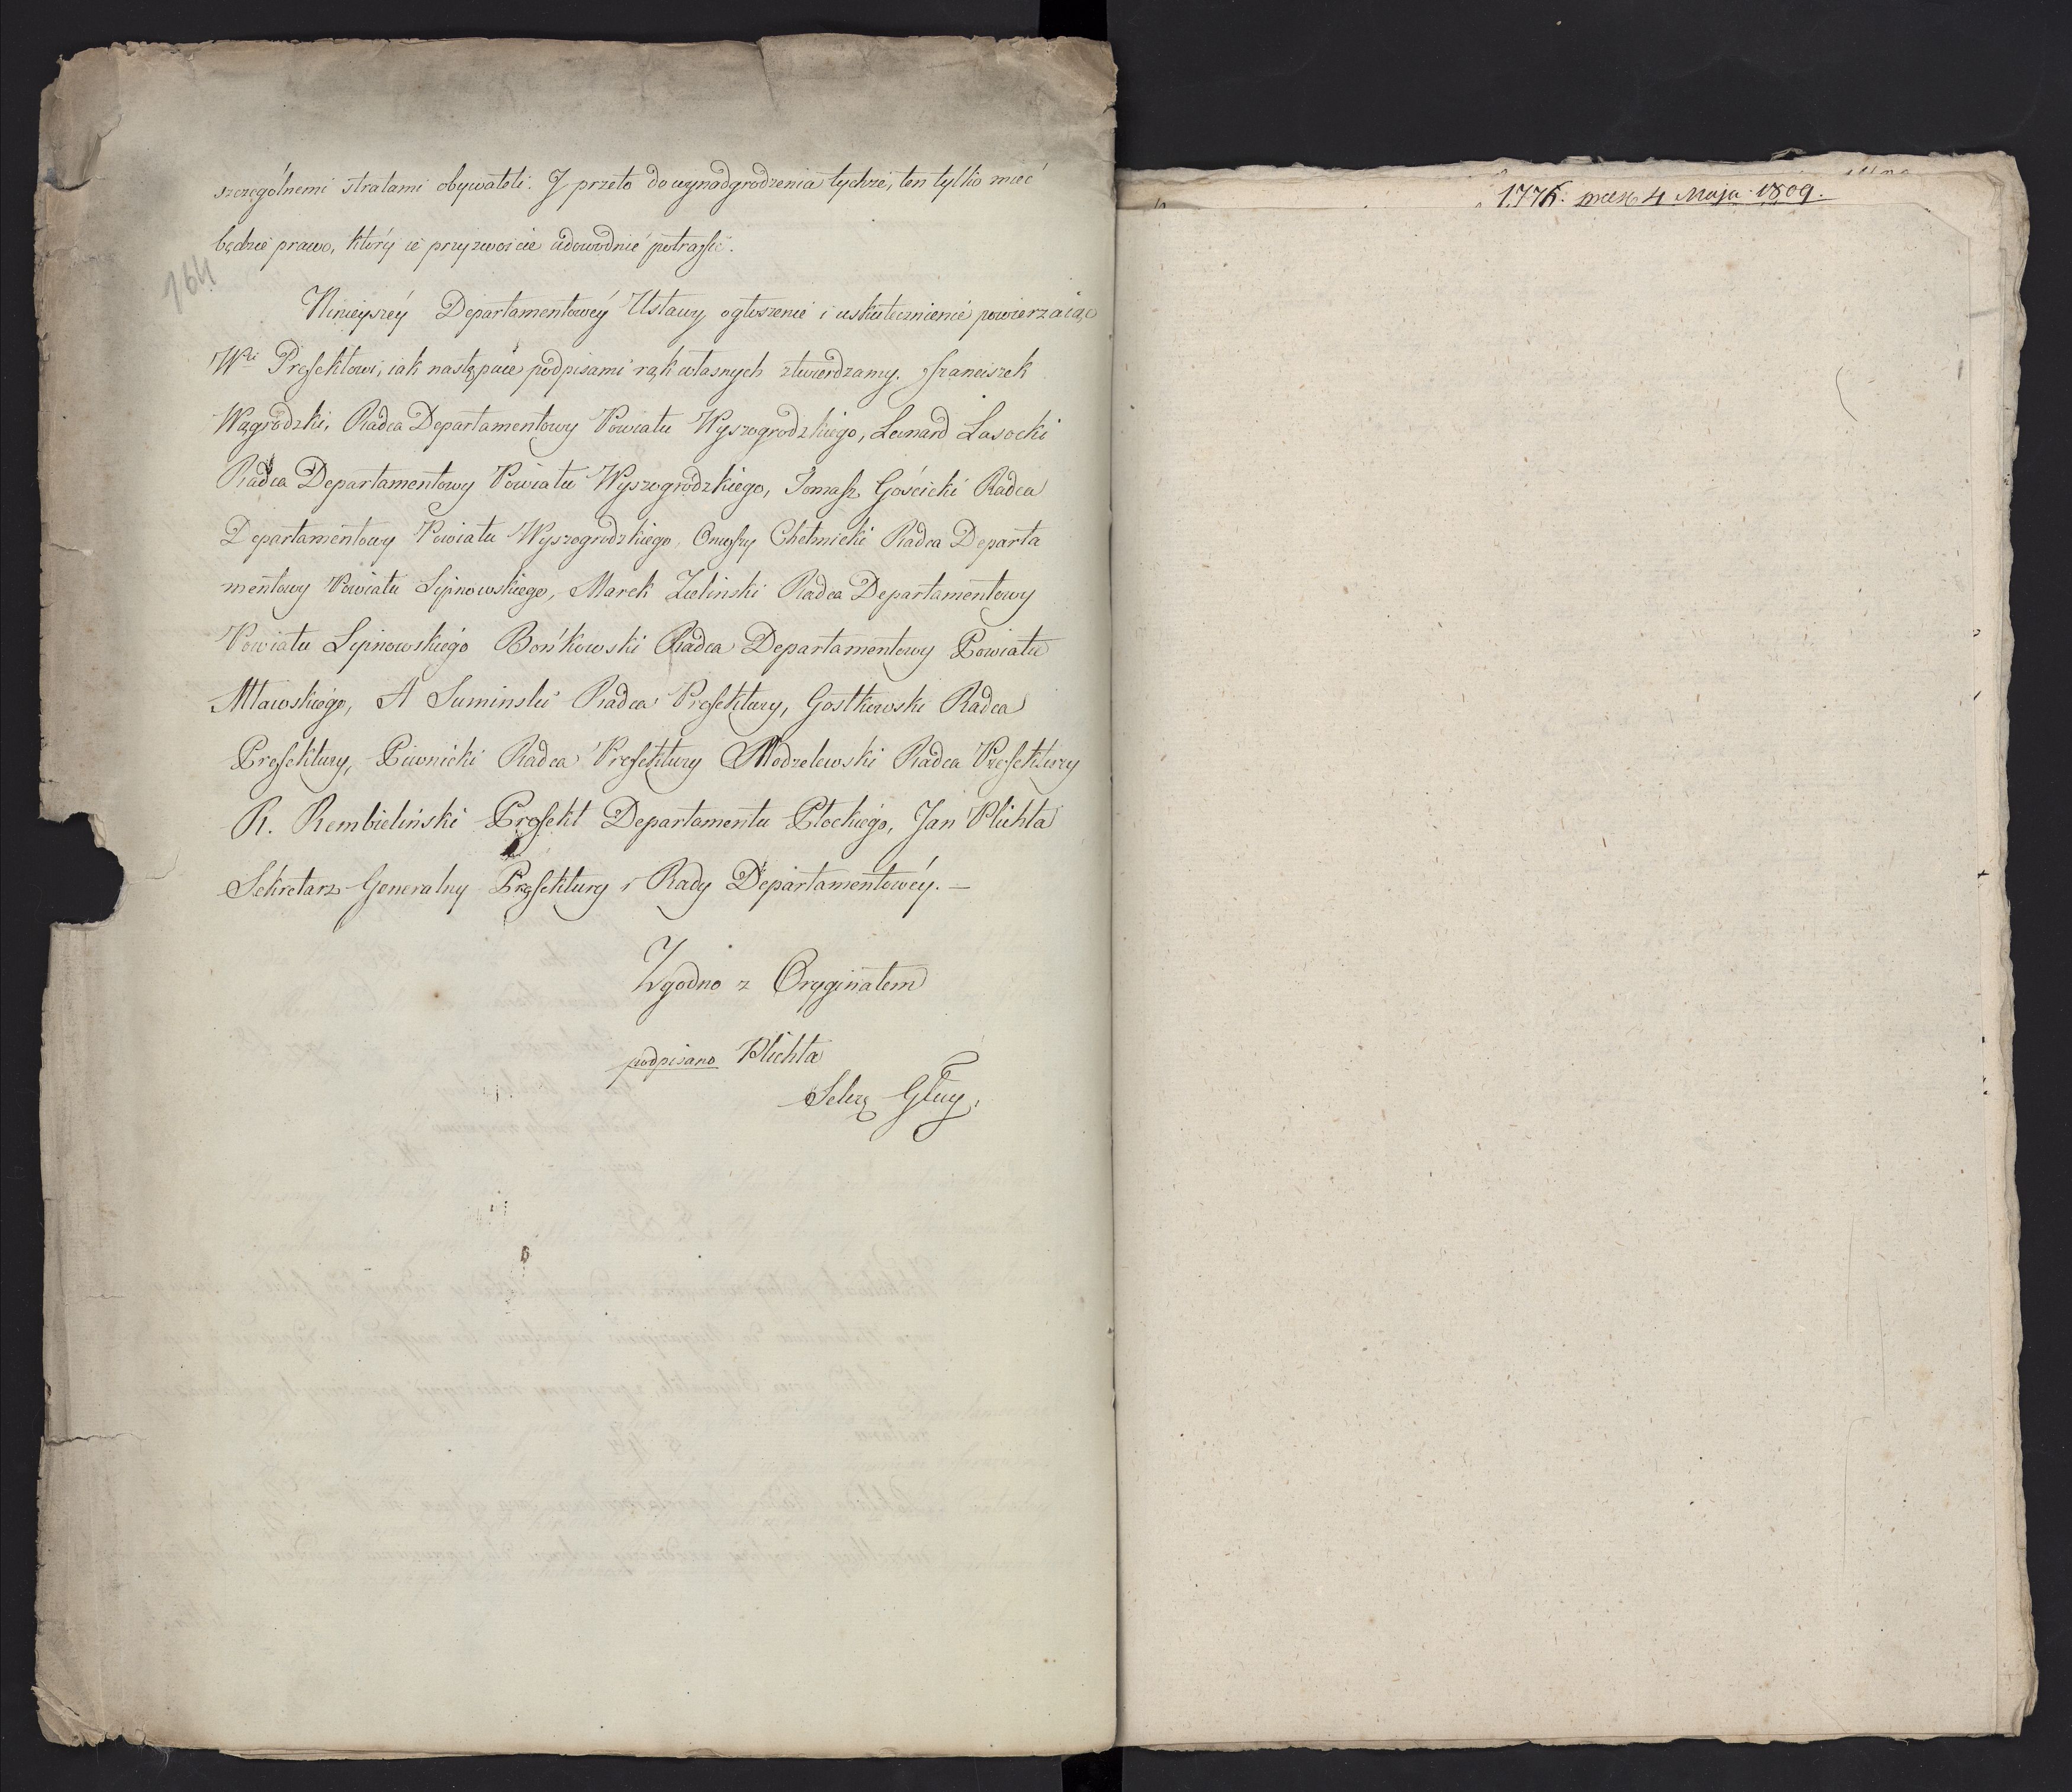 szczególnemi stratami obywateli. J przeto do wynadgrodzenia tychże, ten tylko mieć
będzie prawo, który ie przyzwoicie udowodnić potrafi.
164
Ninieyszéy Departamentowéy Ustawy ogłoszenie i uskutecznienie powierzaiąc
Wmu Prefektowi, iak następuie podpisami rąk własnych ztwierdzamy. Franciszek
Wągrodzki, Radca Departamentowy Powiatu Wyszogrodzkiego, Leonard Lasocki
Radca Departamentowy Powiatu Wyszogrodzkiego, Tomasz Gościcki Radca
Departamentowy Powiatu Wyszogrodzkiego, Onufry Chełmicki Radca Departa
mentowy Powiatu Lipnowskiego, Marek Zielinski Radca Departamentowy
Powiatu Lipnowskiego Bońkowski Radca Departamentowy Powiatu
Mławskiego, A Suminski Radca Prefektury, Gostkowski Radca
Prefektury, Piwnicki Radca Prefektury Modzelewski Radca Prefektury
R. Rembieliński Prefekt Departamentu Płockiego, Jan Plichta
Sekretarz Generalny Prefektury i Rady Departamentowéy. —
Zgodno z Oryginałem
podpisano Plichta
Sekrz Głny
1776. praes 4 Maja 1809.